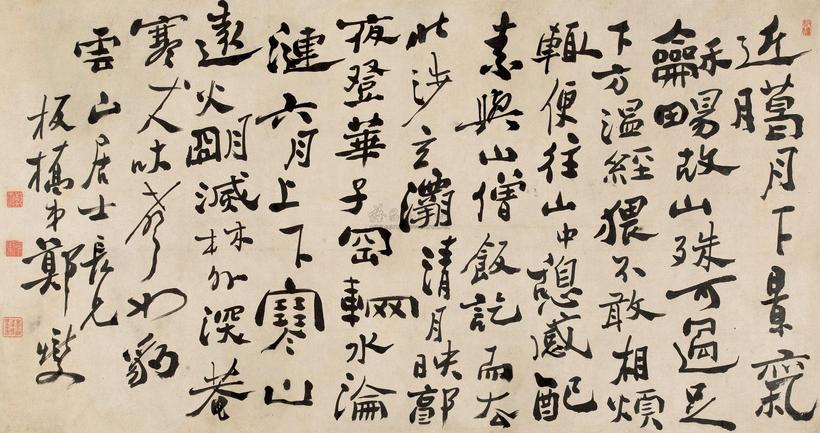 近臈月下景氣
龢暘故山殊可過足
下方溫經猥不敢相煩
輒便往山中憩感配
素與山僧飯訖而去
北涉玄灞清月映郭
夜登華子岡輞水淪
漣六月上下寒山
遠火朙滅林外深巷
寒犬吠聲如豹
雲山居士長兄
板橋弟鄭燮